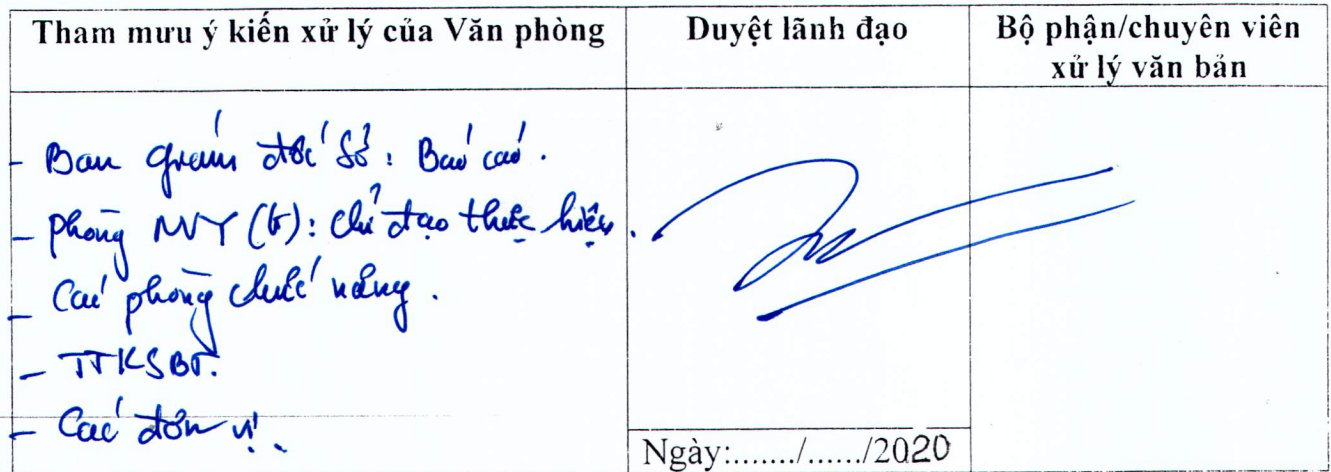 Tham mưu ý kiến xử lý của Văn phòng
Duyệt lãnh đạo
Bộ phận/chuyên viên
xử lý văn bản
- Ban giám đốc Sở: Báo cáo.
- Phòng NVY (b): Chỉ đạo thực hiện.
- Các phòng chức năng.
- TTKSBT.
- Các đơn vị.
Ngày:......./....../2020